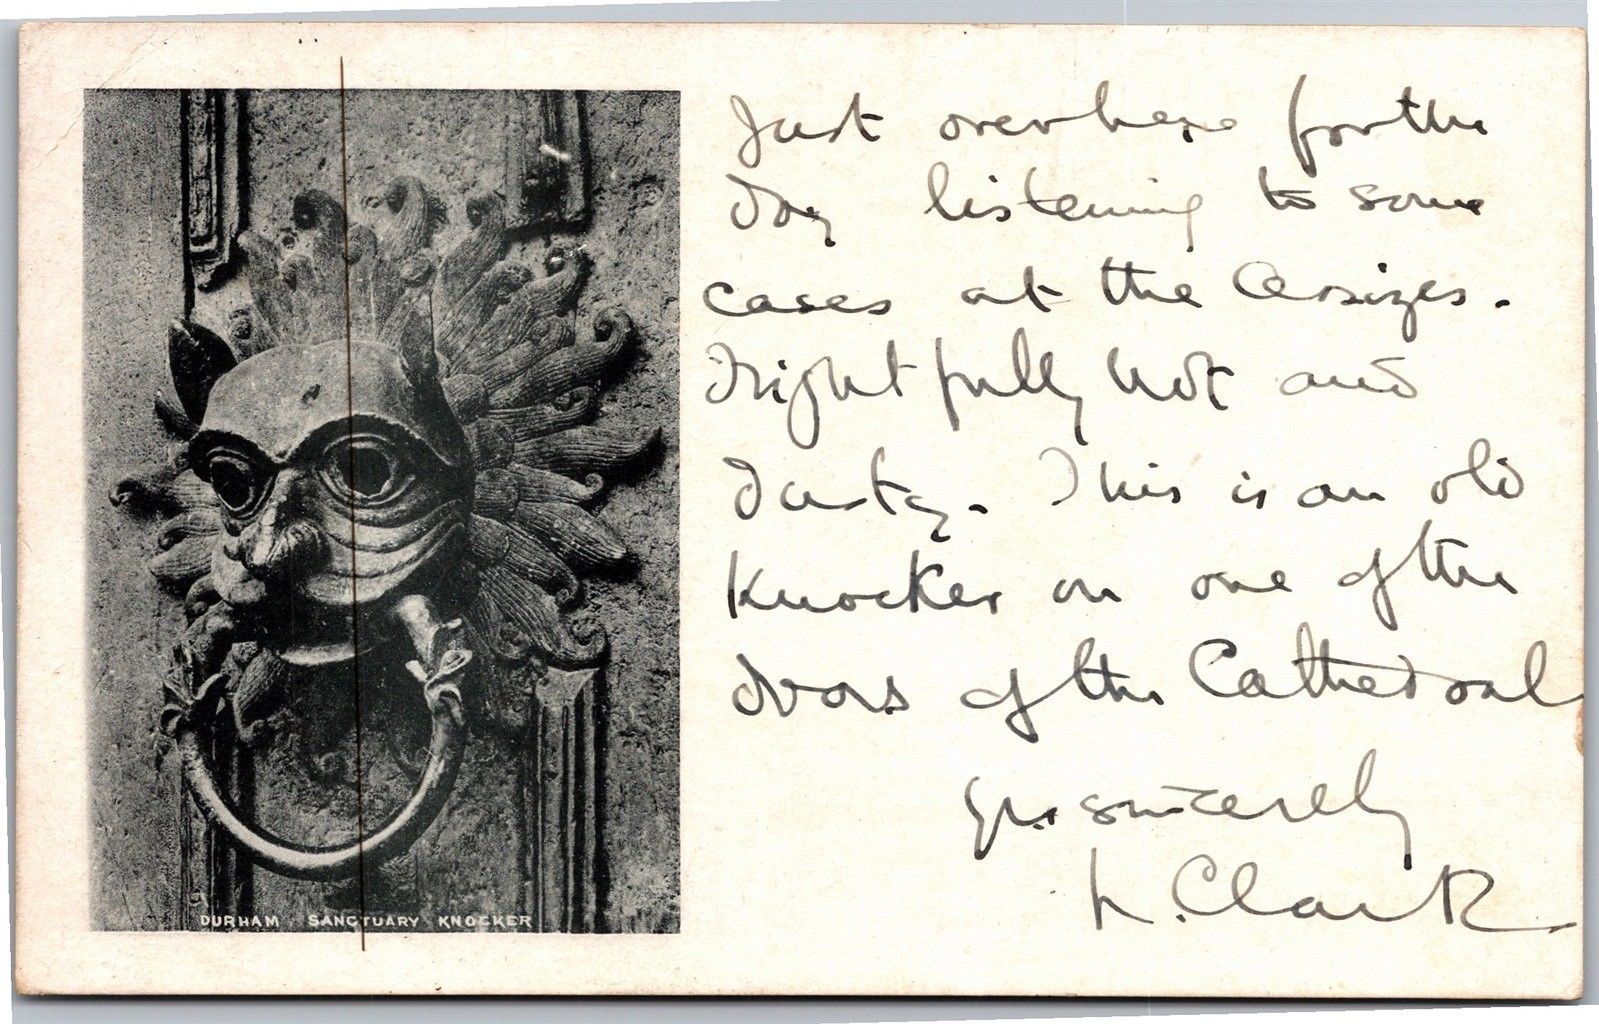 Just over here for the
day listening to some
cases at the Assizes.
Frightfully hot and
dusty. This is an old
Knocker on one of the
doors of the Cathedral
Yrs. sincerely
L. Clark
DURHAM SANCTUARY KNOCKER